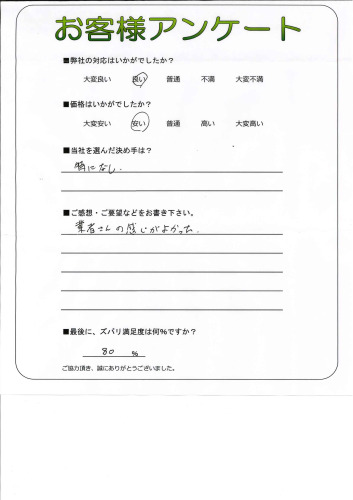 お客様アンケート
■弊社の対応はいかがでしたか？
大変良い 良い 普通 不満 大変不満
■価格はいかがでしたか？
大変安い 安い 普通 高い 大変高い
■当社を選んだ決め手は？
特になし.
■ご感想・ご要望などをお書き下さい。
業者さんの感じがよかった.
■最後に、ズバリ満足度は何%ですか？
80 %
ご協力頂き、誠にありがとうございました。